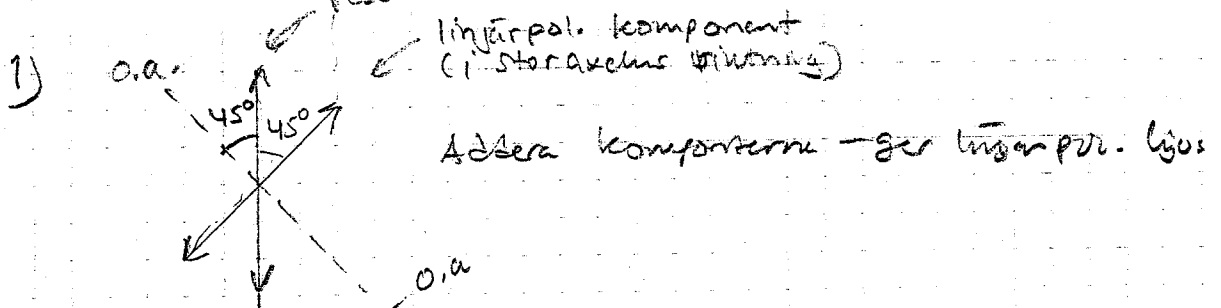 linjärpol. komponent
1) o.a. (i storaxelns riktning)
45° 45°
Addera komponterna - ger linjärpol. ljus
o.a